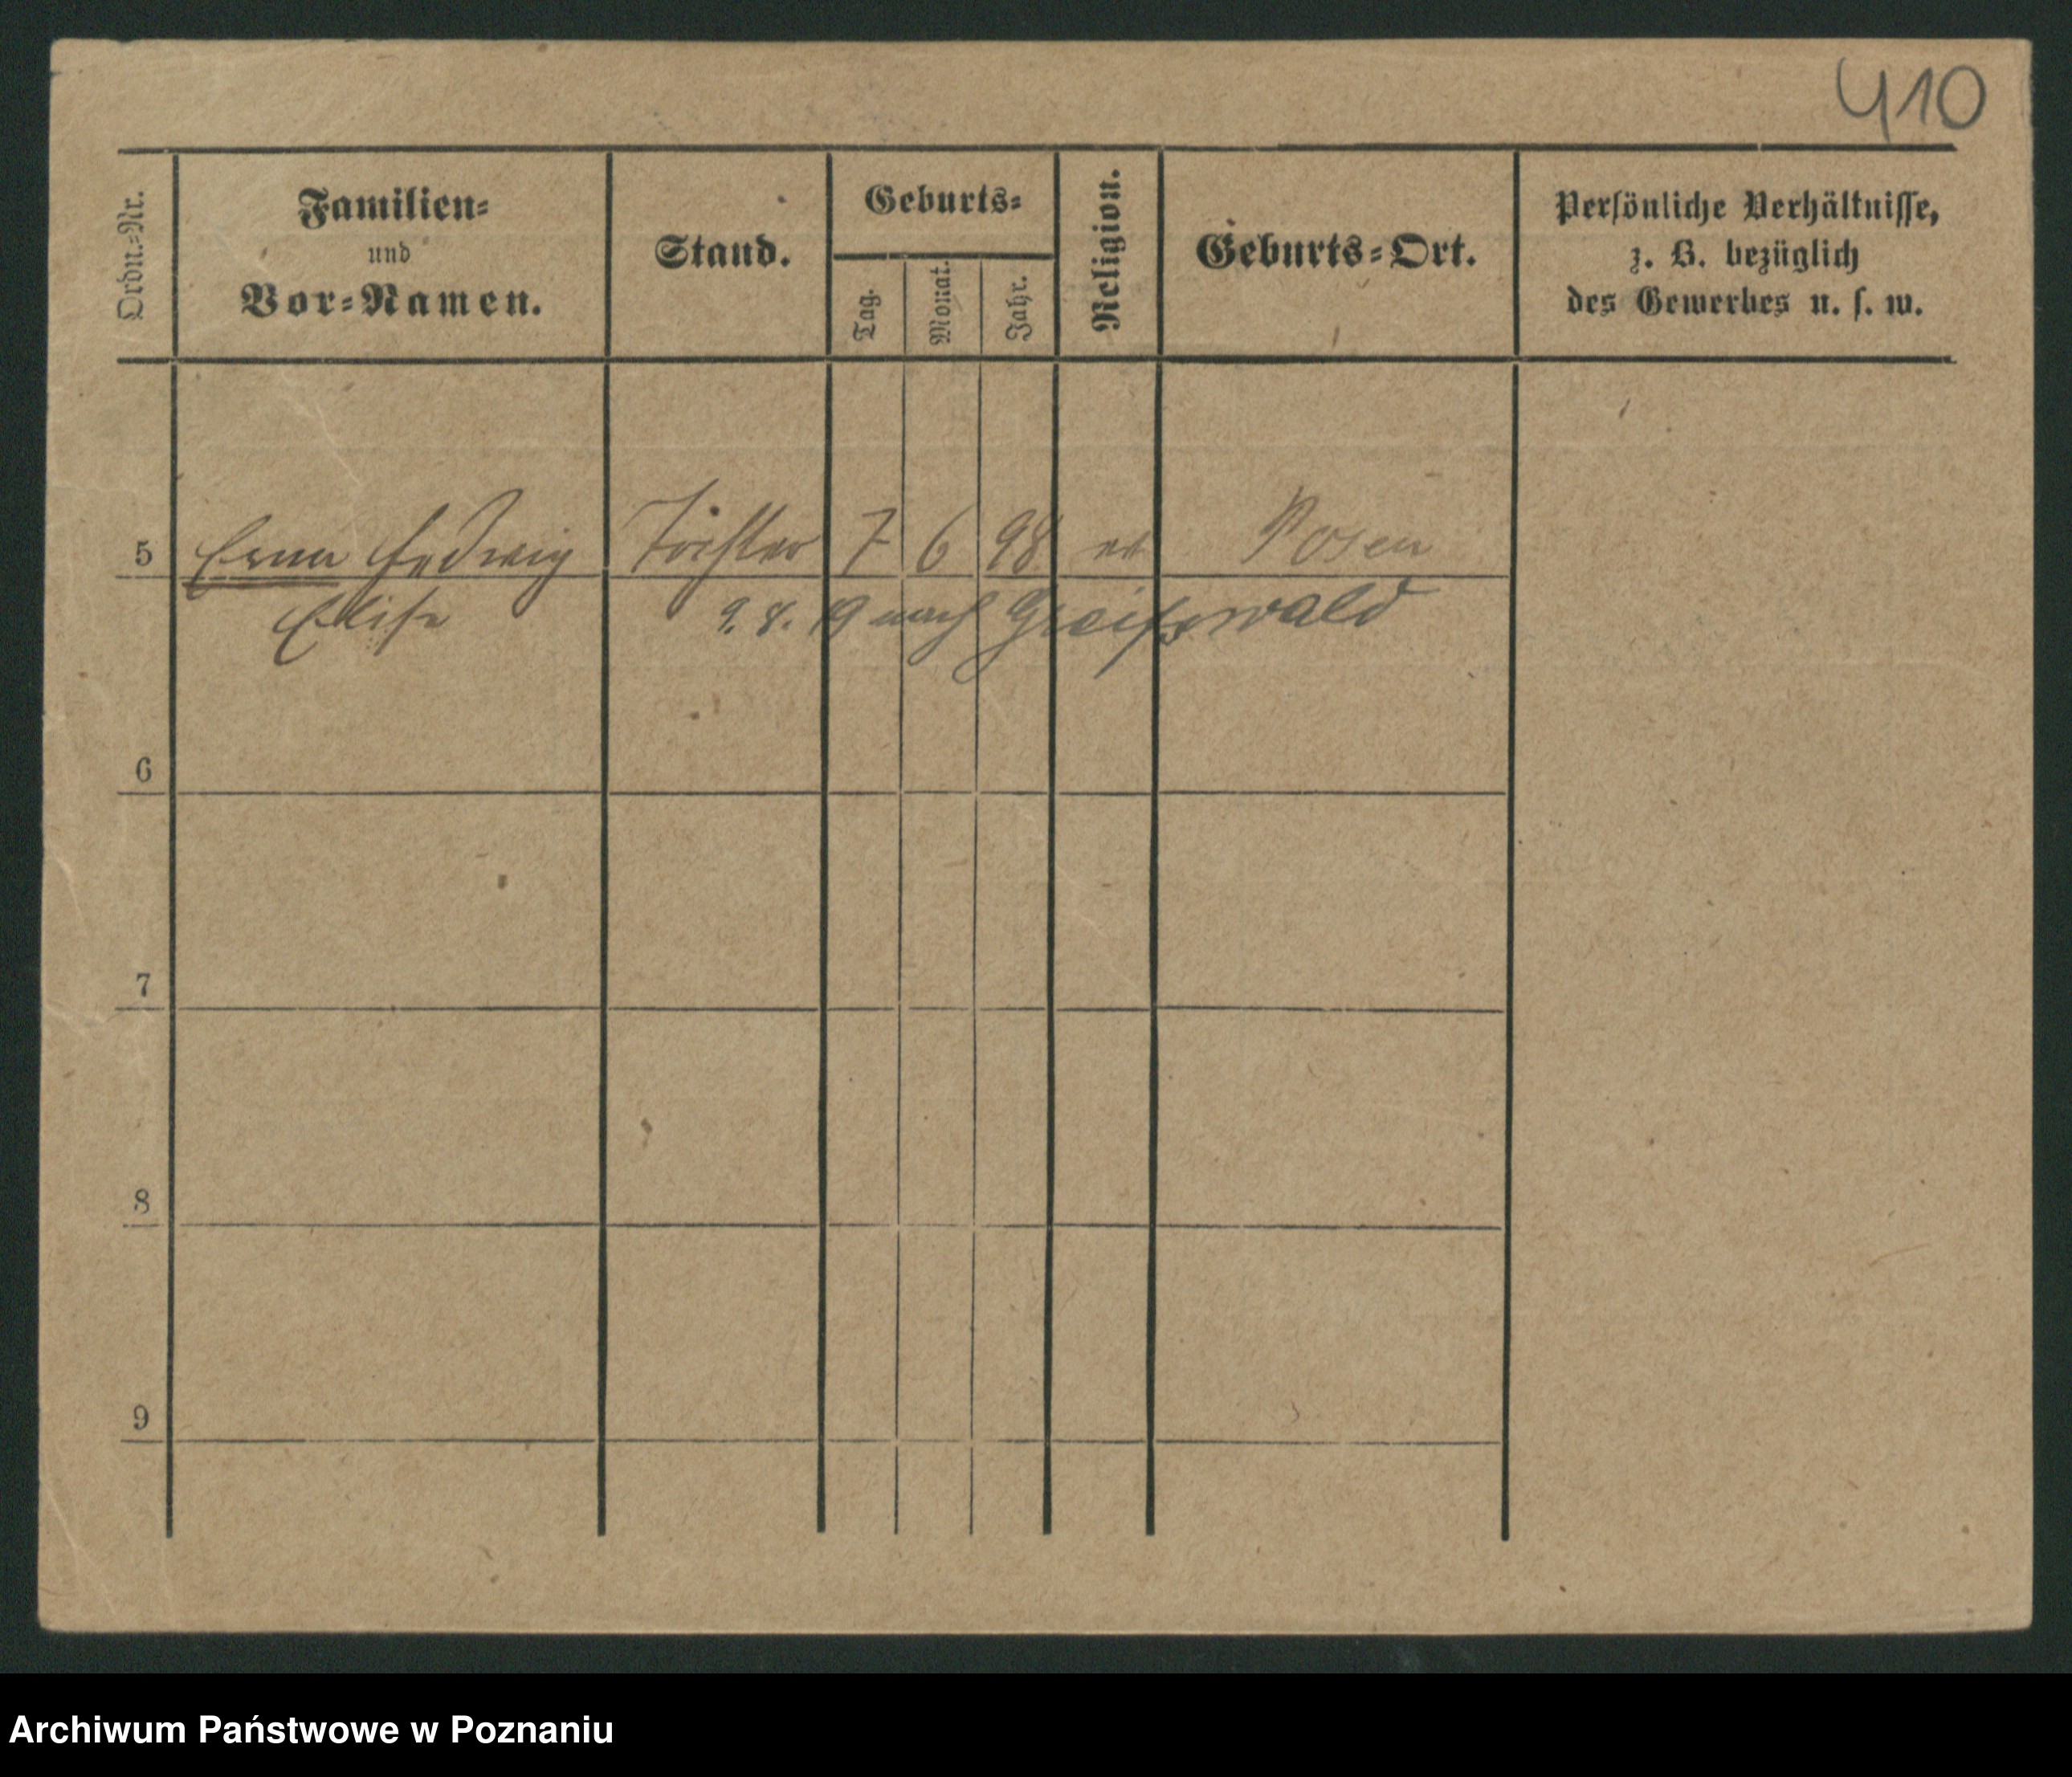 410
Ordn.=Nr.
Familien=
und
Vor=Namen.
Stand.
Geburts=
Tag.
Monat.
Jahr.
Religion.
Geburts=Ort.
Persönliche Verhältnisse,
z. B. bezüglich
des Gewerbes u. s. w.
5 Erna Hedwig Tochter 7 6 98 ev Posen
Elise 9. 8. 19 nach Greifswald
6
7
8
9
Archiwum Państwowe w Poznaniu